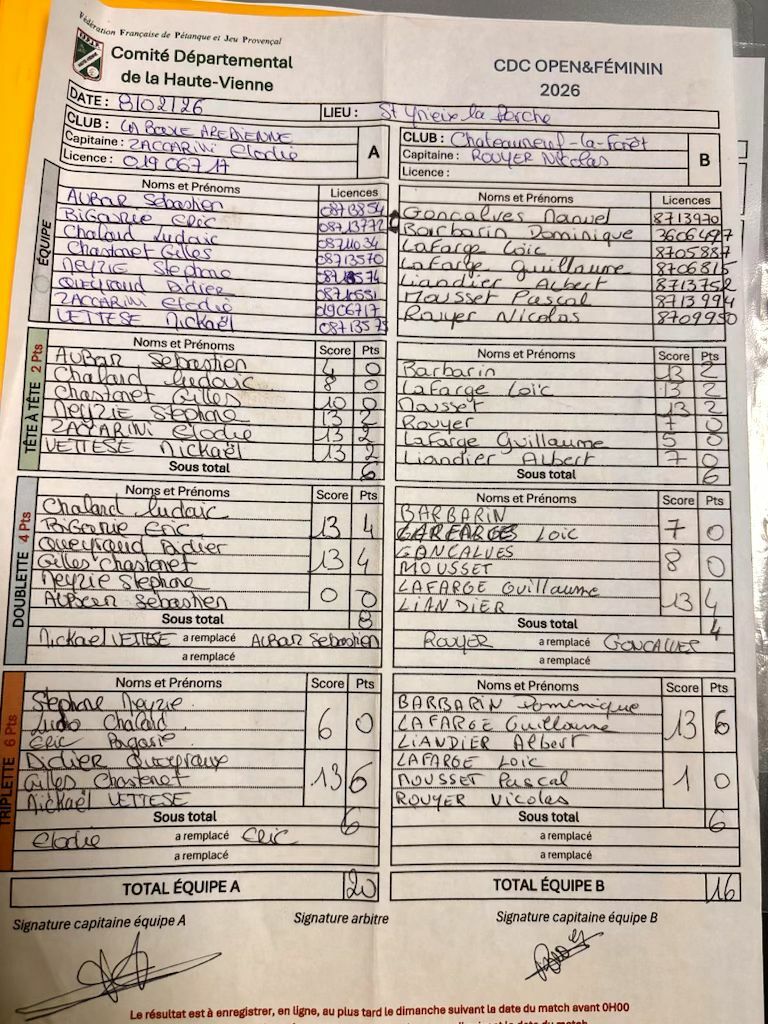 Fédération Française de Pétanque et Jeu Provençal
Comité Départemental
de la Haute-Vienne
CDC OPEN&FÉMININ
2026
DATE : 8/02/26
LIEU : St Yrieix la Perche
CLUB : LA BOULE AREDIENNE
Capitaine : ZACCARINI Elodie
Licence : 019 06717
A
CLUB : Chateauneuf-la-Forêt
Capitaine : ROUYER Nicolas
Licence :
B
ÉQUIPE
Noms et Prénoms Licences
AUBAR Sébastien
BIGARIE Eric 08713772
Chalard Ludovic
Chastanet Gilles 08713570
NEYZIE Stephane
QUEYRAUD Didier
ZACCARINI Elodie 01906717
VETTESE Mickaël 08713573
Noms et Prénoms Licences
Goncalves Manuel 8713970
Barbarin Dominique
Lafarge Loïc 8705887
Lafarge Guillaume 8706815
Liandier Albert 8713752
Mousset Pascal 8713994
Rouyer Nicolas 8709950
TÊTE À TÊTE 2 Pts
Noms et Prénoms Score Pts
AUBAR Sébastien 4 0
Chalard Ludovic 8 0
Chastanet Gilles 10 0
NEYZIE Stephane 13 2
ZACCARINI Elodie 13 2
VETTESE Mickaël 13 2
Sous total 6
Noms et Prénoms Score Pts
Barbarin 13 2
Lafarge Loïc 13 2
Mousset 13 2
Rouyer 7 0
Lafarge Guillaume 5 0
Liandier Albert 7 0
Sous total 6
DOUBLETTE 4 Pts
Noms et Prénoms Score Pts
Chalard Ludovic
Bigarie Eric 13 4
Queyraud Didier
Gilles Chastanet 13 4
Neyzie Stephane
Aubar Sébastien 0 0
Sous total 8
Mickaël VETTESE a remplacé AUBAR Sébastien
a remplacé
Noms et Prénoms Score Pts
BARBARIN
LAFARGE Loïc 7 0
GONCALVES
MOUSSET 8 0
LAFARGE Guillaume
LIANDIER 13 4
Sous total 4
ROUYER a remplacé GONCALVES
a remplacé
TRIPLETTE 6 Pts
Noms et Prénoms Score Pts
Stephane Neyzie
Ludo Chalard 6 0
Eric Bigarie
Didier Queyraud
Gilles Chastanet 13 6
Mickaël VETTESE
Sous total 6
Elodie a remplacé Eric
a remplacé
Noms et Prénoms Score Pts
BARBARIN Dominique
LAFARGE Guillaume 13 6
LIANDIER Albert
LAFARGE Loïc
MOUSSET Pascal 1 0
ROUYER Nicolas
Sous total 6
a remplacé
a remplacé
TOTAL ÉQUIPE A 20
TOTAL ÉQUIPE B 16
Signature capitaine équipe A
Signature arbitre
Signature capitaine équipe B
Le résultat est à enregistrer, en ligne, au plus tard le dimanche suivant la date du match avant 0H00